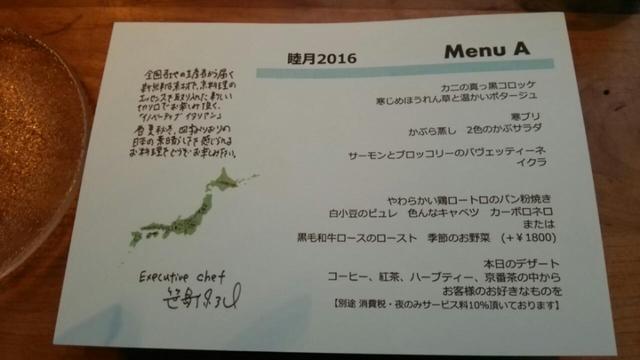 睦月2016
Menu A
全国各地の生産者から届く
新鮮な素材で、京料理の
エッセンスを取り入れた新しい
切り口でお楽しみ頂く、
「イノベーティブ イタリアン」
春夏秋冬、四季おりおりの
日本の素晴しさを感じられる
お料理をどうぞお楽しみ下さい。
Executive chef
カニの真っ黒コロッケ
寒じめほうれん草と温かいポタージュ
寒ブリ
かぶら蒸し 2色のかぶサラダ
サーモンとブロッコリーのバヴェッティーネ
イクラ
やわらかい鶏ロートロのパン粉焼き
白小豆のピュレ 色んなキャベツ カーボロネロ
または
黒毛和牛ロースのロースト 季節のお野菜 (+¥1800)
本日のデザート
コーヒー、紅茶、ハーブティー、京番茶の中から
お客様のお好きなものを
【別途 消費税・夜のみサービス料10%頂いております】